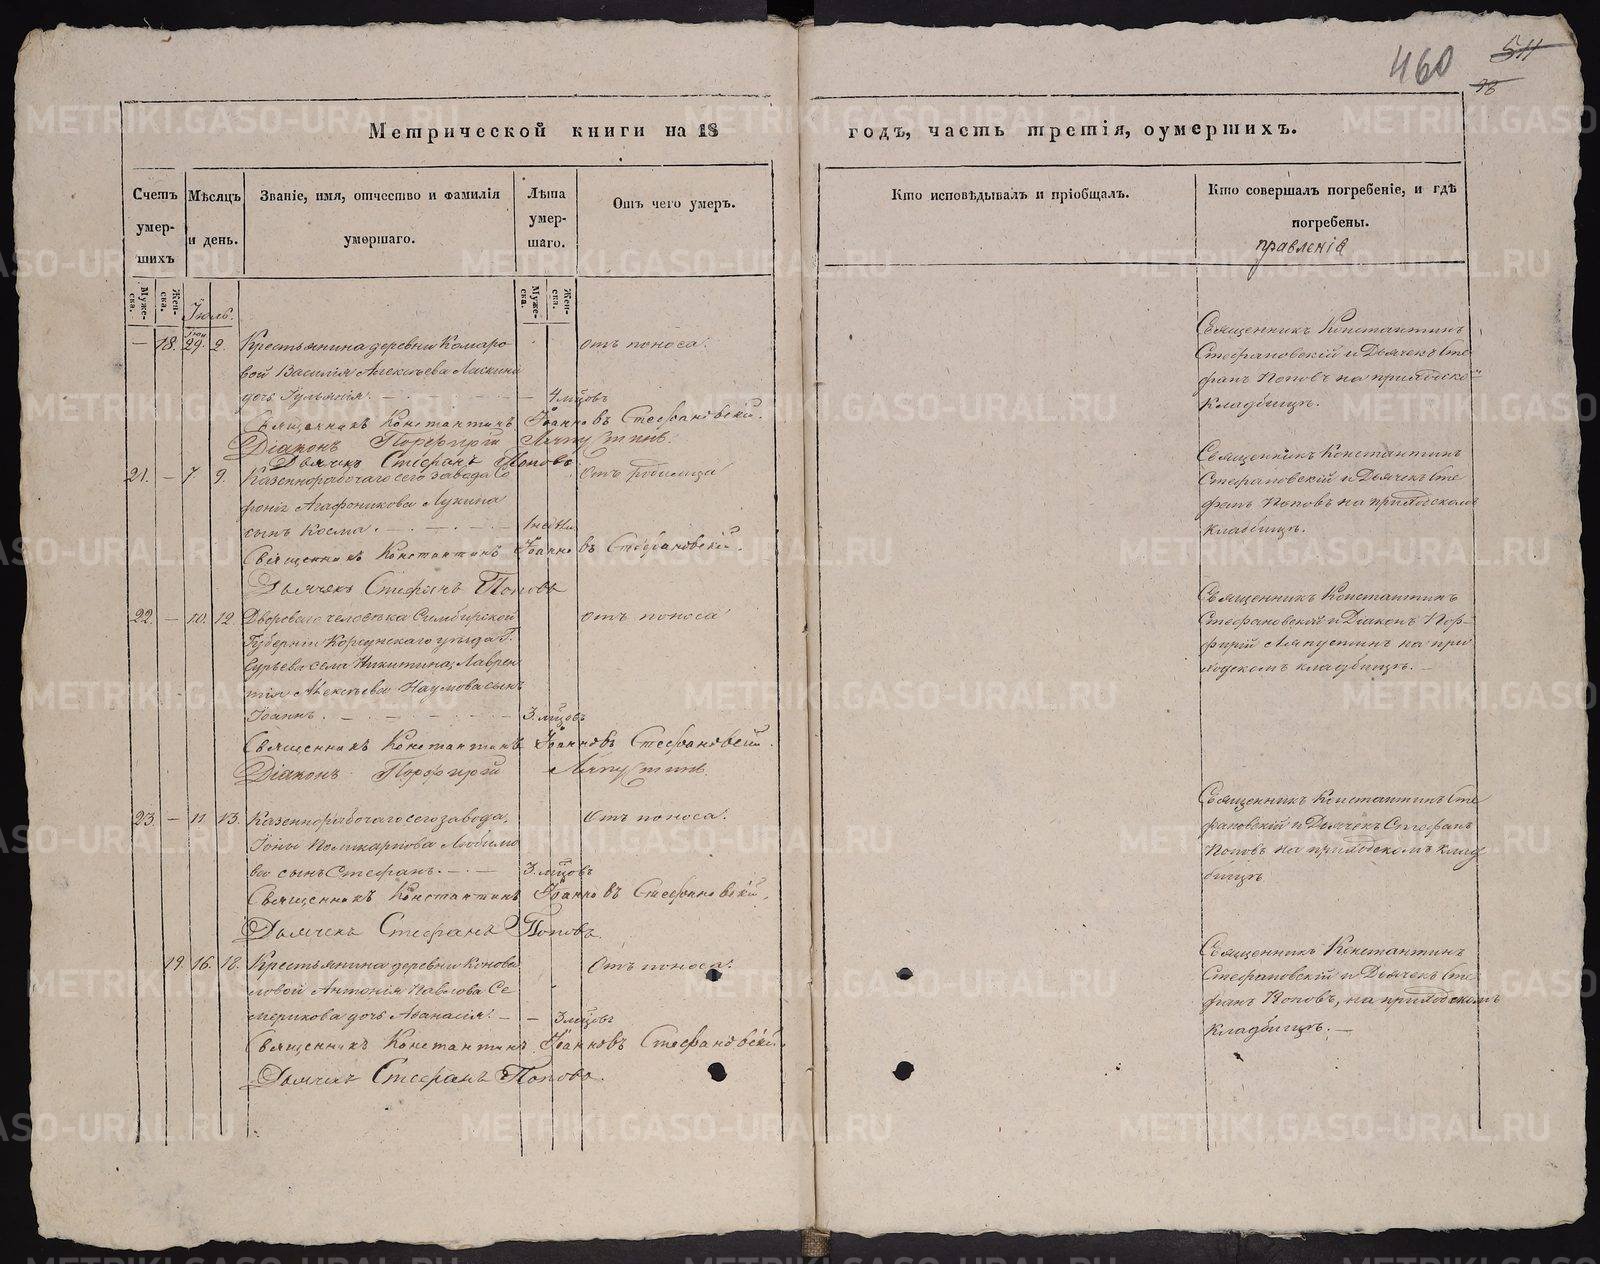 460
511
98
Метрической книги на 18 годъ, часть третія, оумершихъ.
Счетъ умер-шихъ
Мѣсяцъ и день.
Званіе, имя, отчество и фамилія умершаго.
Лѣта умер-шаго.
Отъ чего умеръ.
Кто исповѣдывалъ и пріобщалъ.
Кто совершалъ погребеніе, и гдѣ погребены.
правленія
Муже-ска.
Жен-ска.
Муже-ска.
Жен-ска.
Іюль.
— 18. Іюн 29. 2. Крестьянина деревни Комаро
вой Василія Алексѣева
дочь Іульянія. — 4 мѣсцовъ
Отъ поноса.
Священникъ Константинъ Іоанновъ Стефановскій.
Діаконъ Порфирій Ляпустинъ.
Дьячекъ Стефанъ Поповъ
Священникъ Константинъ
Стефановскій и Дьячекъ Сте
фанъ Поповъ на приходско
кладбищѣ.
21. — 7. 9. Казеннорабочаго сего завода Со
фонія Агафоникова Лукина
сынъ Косма. — 1 недѣли
Отъ родимца
Священникъ Константинъ Іоанновъ Стефановскій.
Дьячекъ Стефанъ Поповъ
Священникъ Константинъ
Стефановскій и Дьячекъ Сте
фанъ Поповъ на приходскомъ
кладбищѣ.
22. — 10. 12. Двороваго человѣка Симбирской
Губерніи Корсунскаго уѣзда Г.
Гурьева села Никитина, Лаврен
тія Алексѣева Наумова сынъ
Іоаннъ. — 3. мѣсцовъ
Отъ поноса
Священникъ Константинъ Іоанновъ Стефановскій.
Діаконъ Порфирій Ляпустинъ
Священникъ Константинъ
Стефановскій и Діаконъ Пор-
фирій Ляпустинъ на при
ходскомъ кладбищѣ. —
23. — 11. 13. Казеннорабочаго сего завода,
Іоны Поликарпова Любимо
ва сынъ Стефанъ. — 3. мѣсцовъ
Отъ поноса.
Священникъ Константинъ Іоанновъ Стефановскій.
Дьячекъ Стефанъ Поповъ
Священникъ Константинъ Сте
фановскій и Дьячекъ Стефанъ
Поповъ на приходскомъ клад
бищѣ
19. 16. 18. Крестьянина деревни Конова
ловой Антонія Павлова Се
мерикова дочь Аѳанасія. — 3 мѣсцовъ
Отъ поноса.
Священникъ Константинъ Іоанновъ Стефановскій.
Дьячекъ Стефанъ Поповъ.
Священникъ Константинъ
Стефановскій и Дьячекъ Сте
фанъ Поповъ, на приходскомъ
кладбищѣ. —
METRIKI.GASO-URAL.RU